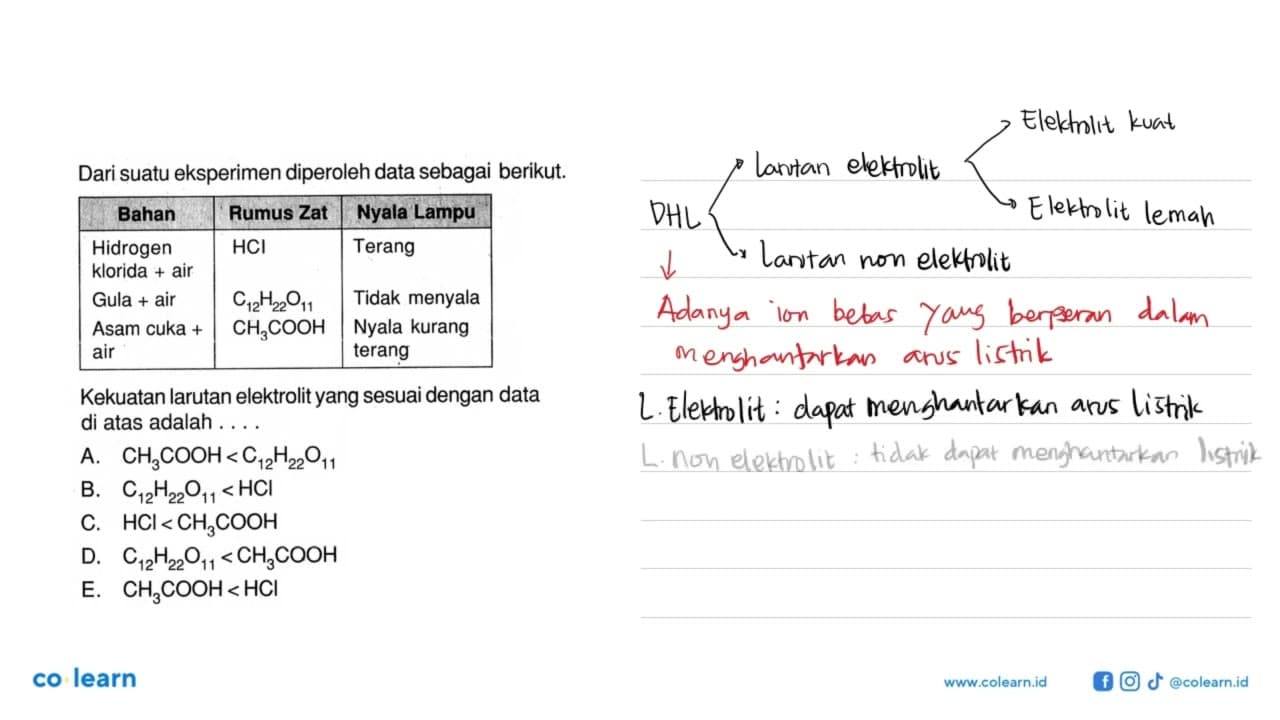 Dari suatu eksperimen diperoleh data sebagai berikut.
Bahan Rumus Zat Nyala Lampu
Hidrogen klorida + air HCl Terang
Gula + air C₁₂H₂₂O₁₁ Tidak menyala
Asam cuka + air CH₃COOH Nyala kurang terang
Kekuatan larutan elektrolit yang sesuai dengan data
di atas adalah . . . .
A. CH₃COOH < C₁₂H₂₂O₁₁
B. C₁₂H₂₂O₁₁ < HCl
C. HCl < CH₃COOH
D. C₁₂H₂₂O₁₁ < CH₃COOH
E. CH₃COOH < HCl
Elektrolit kuat
Larutan elektrolit
Elektrolit lemah
DHL
Larutan non elektrolit
Adanya ion bebas yang berperan dalam
menghantarkan arus listrik
L. Elektrolit : dapat menghantarkan arus listrik
L. non elektrolit : tidak dapat menghantarkan listrik
co learn
www.colearn.id
@colearn.id